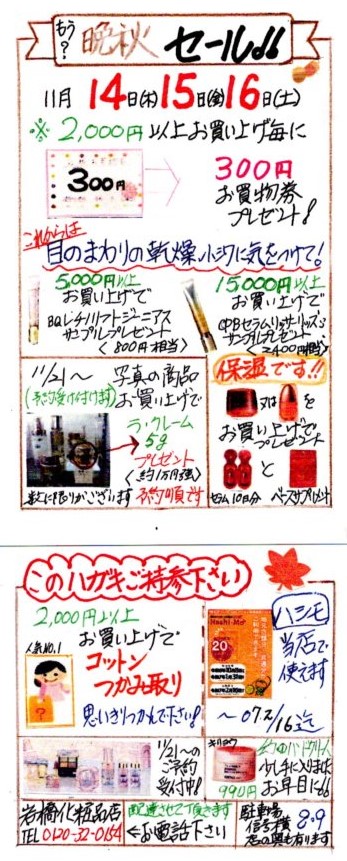 もう?
晩秋 セール!!
11月 14日(木)15日(金)16日(土)
※2,000円以上お買い上げ毎に
300円
300円
お買物券
プレゼント!
これからは
目のまわりの乾燥、小ジワに気をつけて!
5,000円以上
お買い上げで
サンプルプレゼント
<800円相当>
15,000円以上
お買い上げで
サンプルプレゼント
2400円相当>
11/21~ 写真の商品
(予約受け付けます) お買い上げで
ラ・クレーム
5g
プレゼント
<約1万円強>
数に限りがございます 予約順です
保湿です!!
又は を
お買い上げで
プレゼント
と
セラム10日分 ベースサプリメント
このハガキご持参下さい
2,000円以上
お買い上げで
人気NO.1
コットン
つかみ取り
思いきりつかんで下さい!
ハシモ
当店で
使えます
20
~07.2/16迄
11/21~
ご予約
受付中!
990円
幻のハンドクリーム
少し手に入りました
お早目に!!
岩橋化粧品店
TEL 0120-32-0154
配達させて頂きます
←お電話下さい
駐車場 8・9
信号横
店の奥も有ります